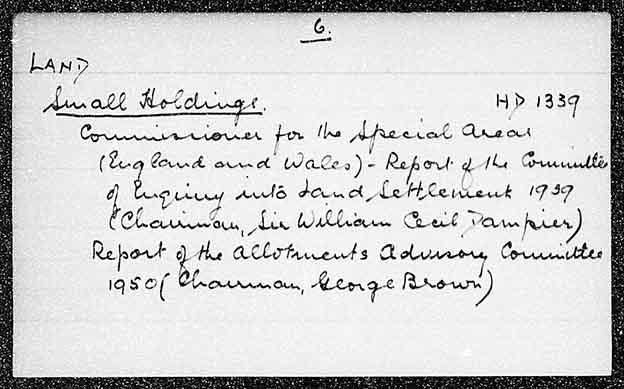 6.
LAND
Small Holdings. HD 1339
Commissioner for the Special Areas
(England and Wales) - Report of the Committee
of Enquiry into Land Settlement 1939
(Chairman, Sir William Cecil Dampier)
Report of the Allotments Advisory Committee
1950 (Chairman, George Brown)